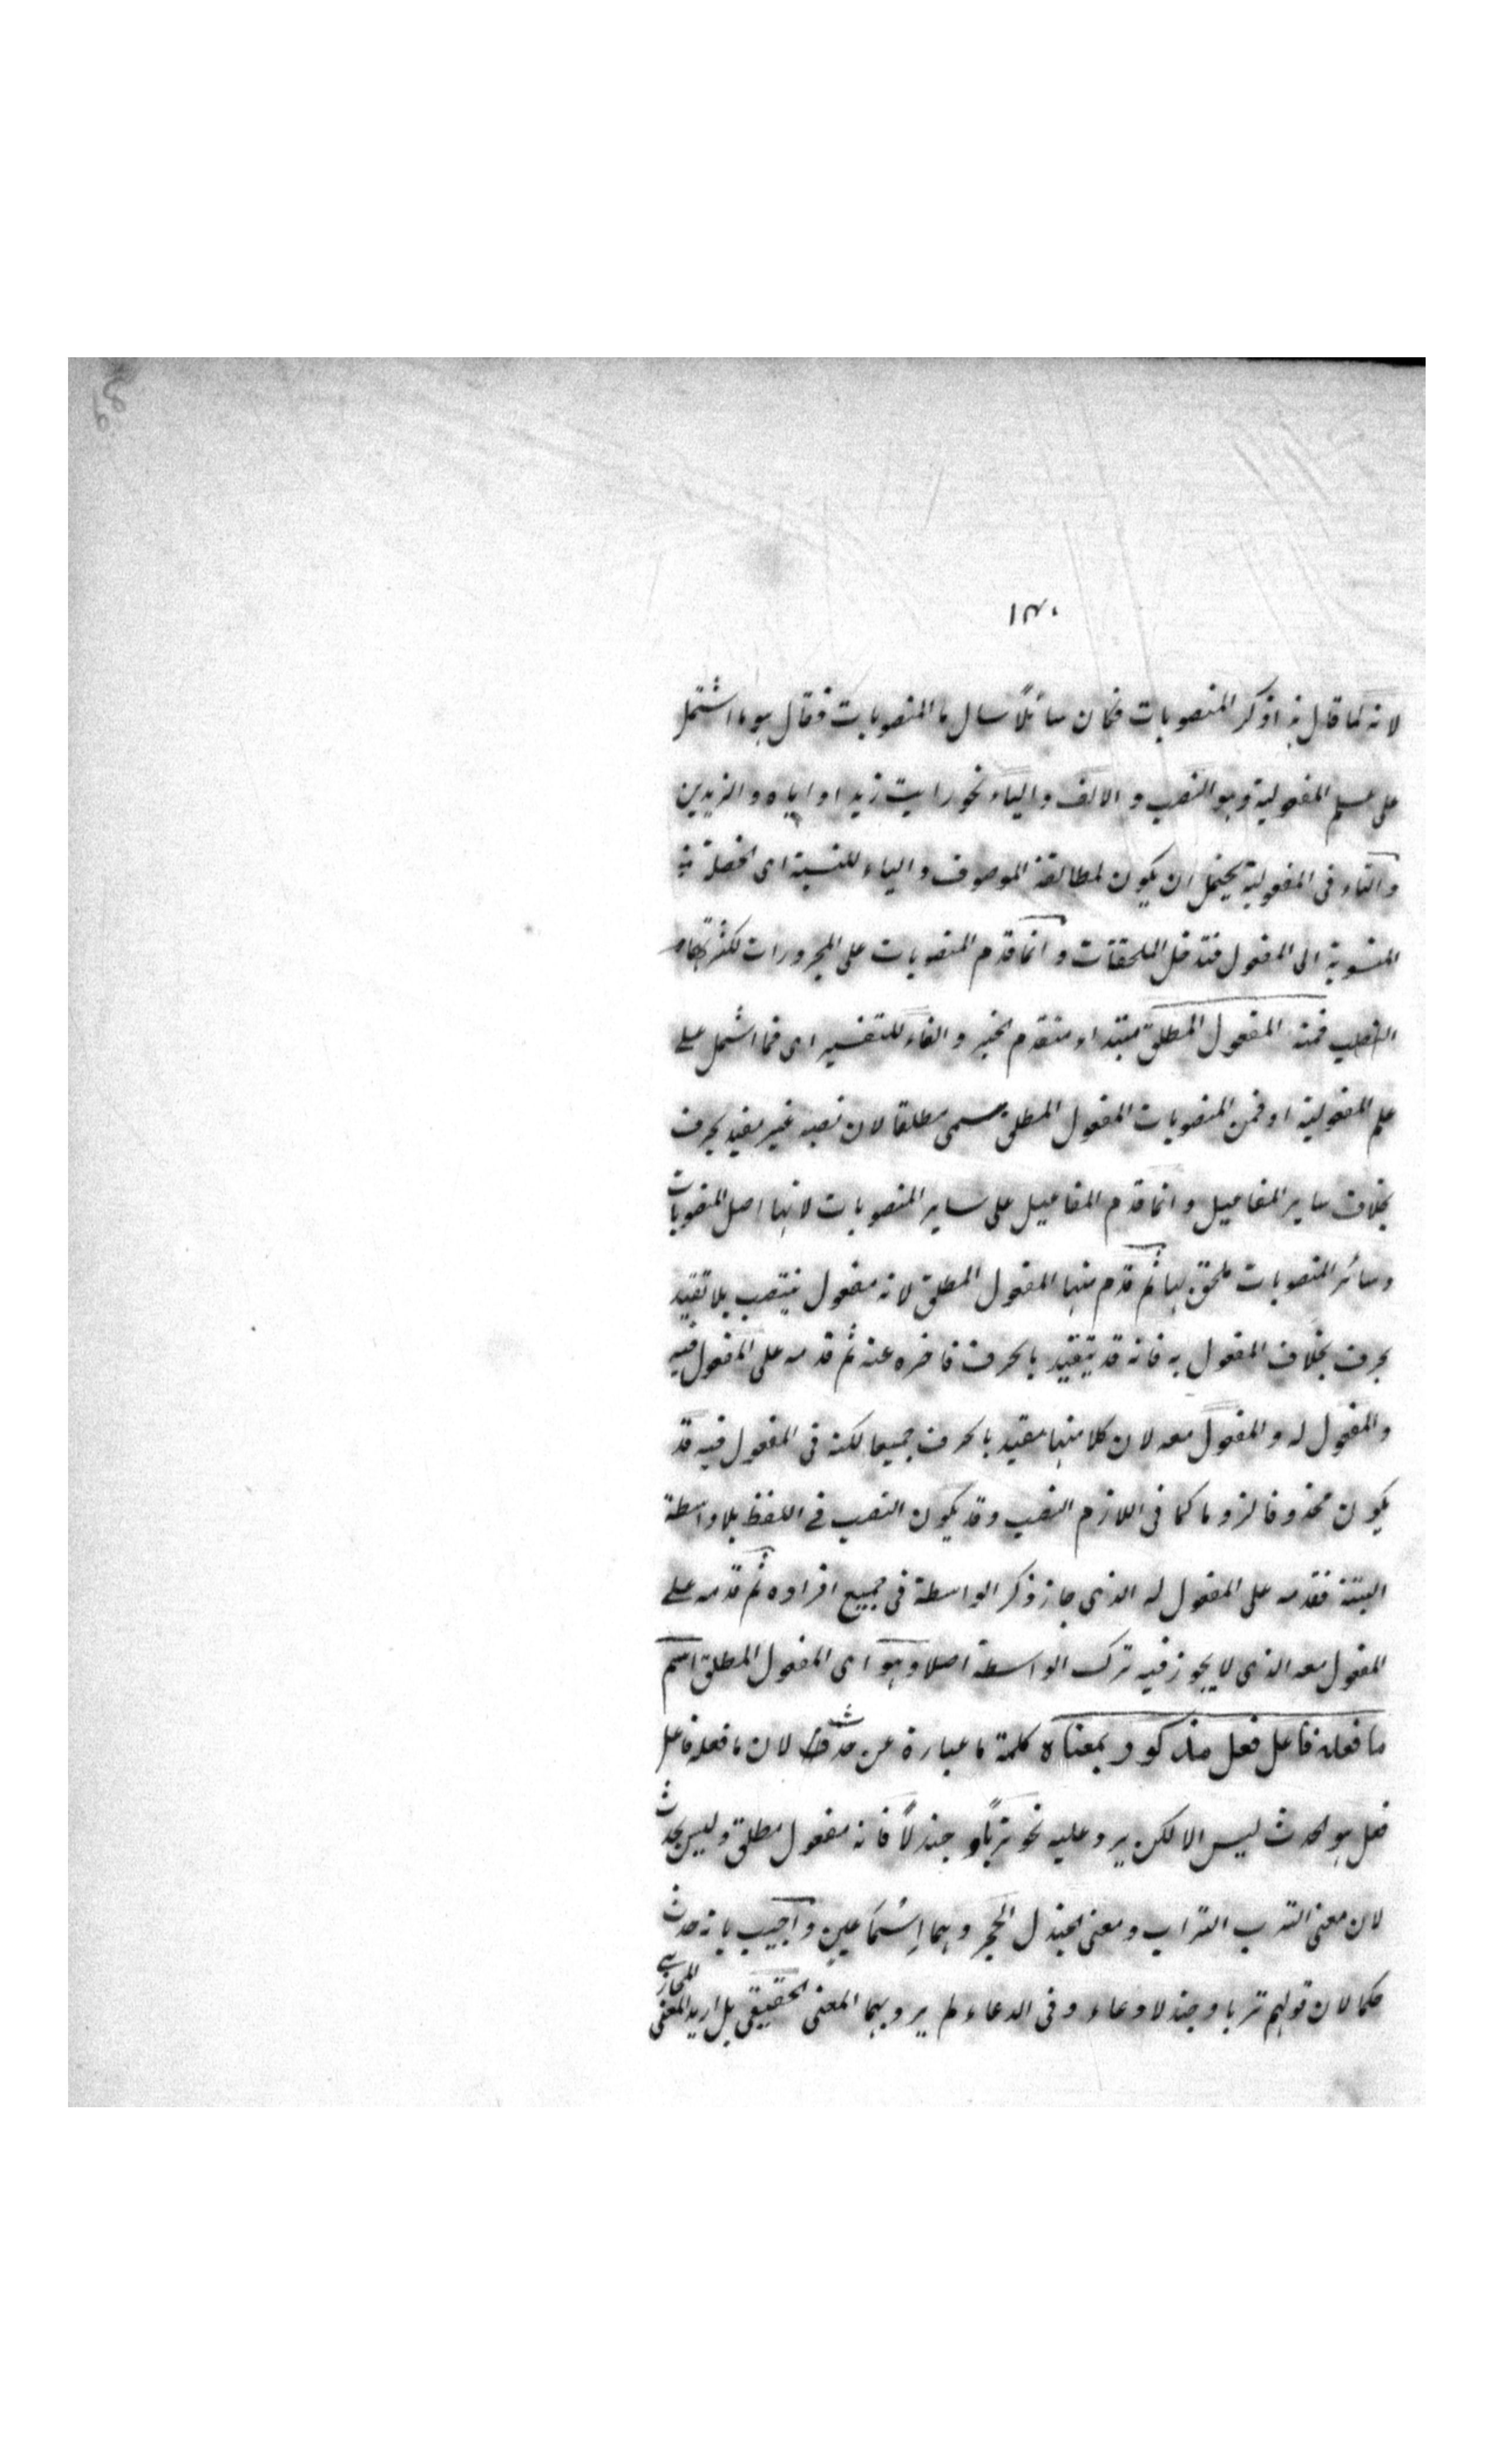 ١٣٠
لانه لما قال اذكر المنصوبات فكان سائلاً سال ما المنصوبات فقال هو ما اشتمل
على علم المفعولية وهو النصب والالف والياء نحو رايت زيدا واباه والزيدين
والتاء فى المفعولية يحتمل ان يكون لمطابقة الموصوف والياء للنسبة اى الخصلة
المنسوبة الى المفعول فتدخل الملحقات وانما قدم المنصوبات على المجرورات لكثرتها
النصب فمنه المفعول المطلق مبتداء متقدم الخبر والفاء للتفسير اى فمما اشتمل على
علم المفعولية او فمن المنصوبات المفعول المطلق سمى مطلقا لان نصبه غير مقيد بحرف
بخلاف ساير المفاعيل وانما قدم المفاعيل على ساير المنصوبات لانها اصل المنصوبات
وسائر المنصوبات ملحق بها ثم قدم منها المفعول المطلق لانه مفعول ينتصب بلا تقييد
بحرف بخلاف المفعول به فانه قد يتقيد بالحرف فاخره عنه ثم قدمه على المفعول فيه
والمفعول له والمفعول معه لان كلا منها مقيد بالحرف جميعا لكنه فى المفعول فيه قد
يكون محذوفا لزوما كما فى اللازم النصب وقد يكون النصب فى اللفظ بلا واسطة
البتة فقدمه على المفعول له الذى جاز ذكر الواسطة فى جميع افراده ثم قدمه على
المفعول معه الذى لا يجوز فيه ترك الواسطة اصلا وهو اى المفعول المطلق اسم
ما فعله فاعل فعل مذكور بمعناه كلمة ما عبارة عن حدث لان ما فعله فاعل
فعل هو الحدث ليس الا لكن يرد عليه نحو ترباً وجندلاً فانه مفعول مطلق وليس بحدث
لان معنى الترب التراب ومعنى الجندل الحجر وهما اسما عين واجيب بانه حدث
حكما لان قولهم تربا وجندلا دعاء وفى الدعاء لم يرد بهما المعنى الحقيقى بل اريد المعنى المجازى